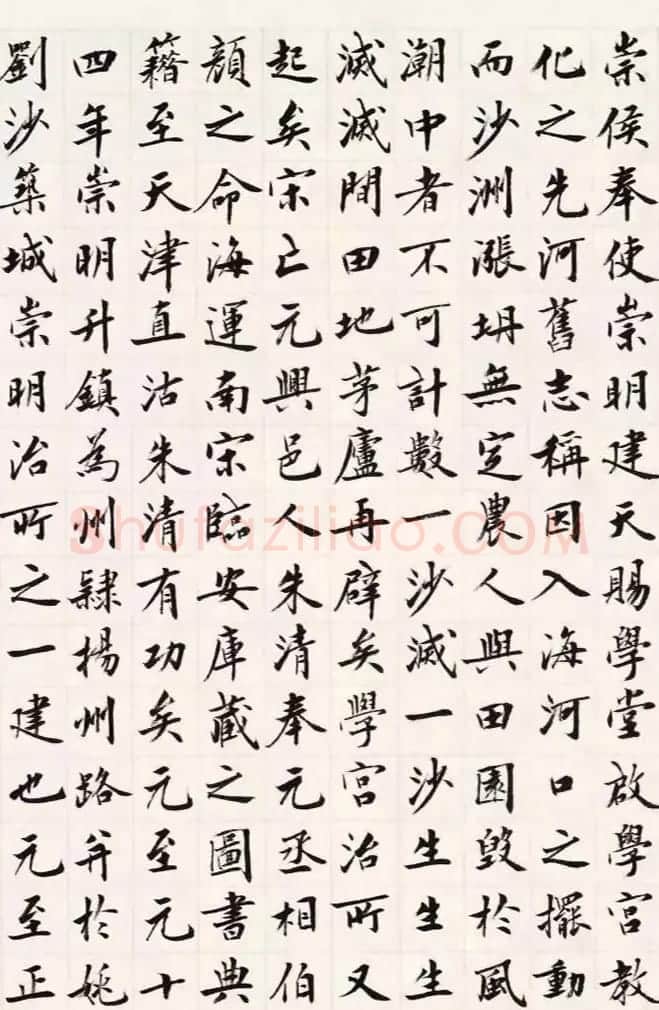 崇侯奉使崇明建天賜學堂啟學宮教
化之先河舊志稱因入海河口之擺動
而沙洲漲坍無定農人與田園毀於風
潮中者不可計數一沙滅一沙生生生
滅滅間田地茅廬再辟矣學宮治所又
起矣宋亡元興邑人朱清奉元丞相伯
顏之命海運南宋臨安庫藏之圖書典
籍至天津直沽朱清有功矣元至元十
四年崇明升鎮為州隸揚州路并於姚
劉沙築城崇明治所之一建也元至正
shufaziliao.COM